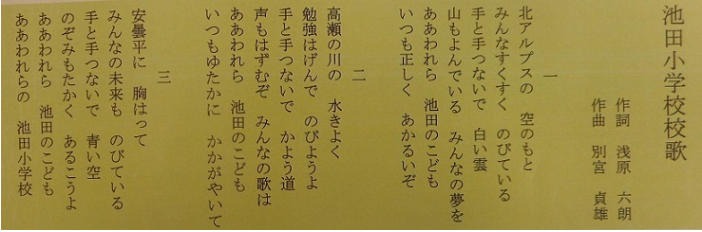 池田小学校校歌
作詞　浅原　六朗
作曲　別宮　貞雄
一
北アルプスの　空のもと
みんなすくすく　のびている
手と手つないで　白い雲
山もよんでいる　みんなの夢を
ああわれら　池田のこども
いつも正しく　あかるいぞ
二
高瀬の川の　水きよく
勉強はげんで　のびようよ
手と手つないで　かよう道
声もはずむぞ　みんなの歌は
ああわれら　池田のこども
いつもゆたかに　かがやいて
三
安曇平に　胸はって
みんなの未来も　のびている
手と手つないで　青い空
のぞみもたかく　あるこうよ
ああわれら　池田のこども
ああわれらの　池田小学校